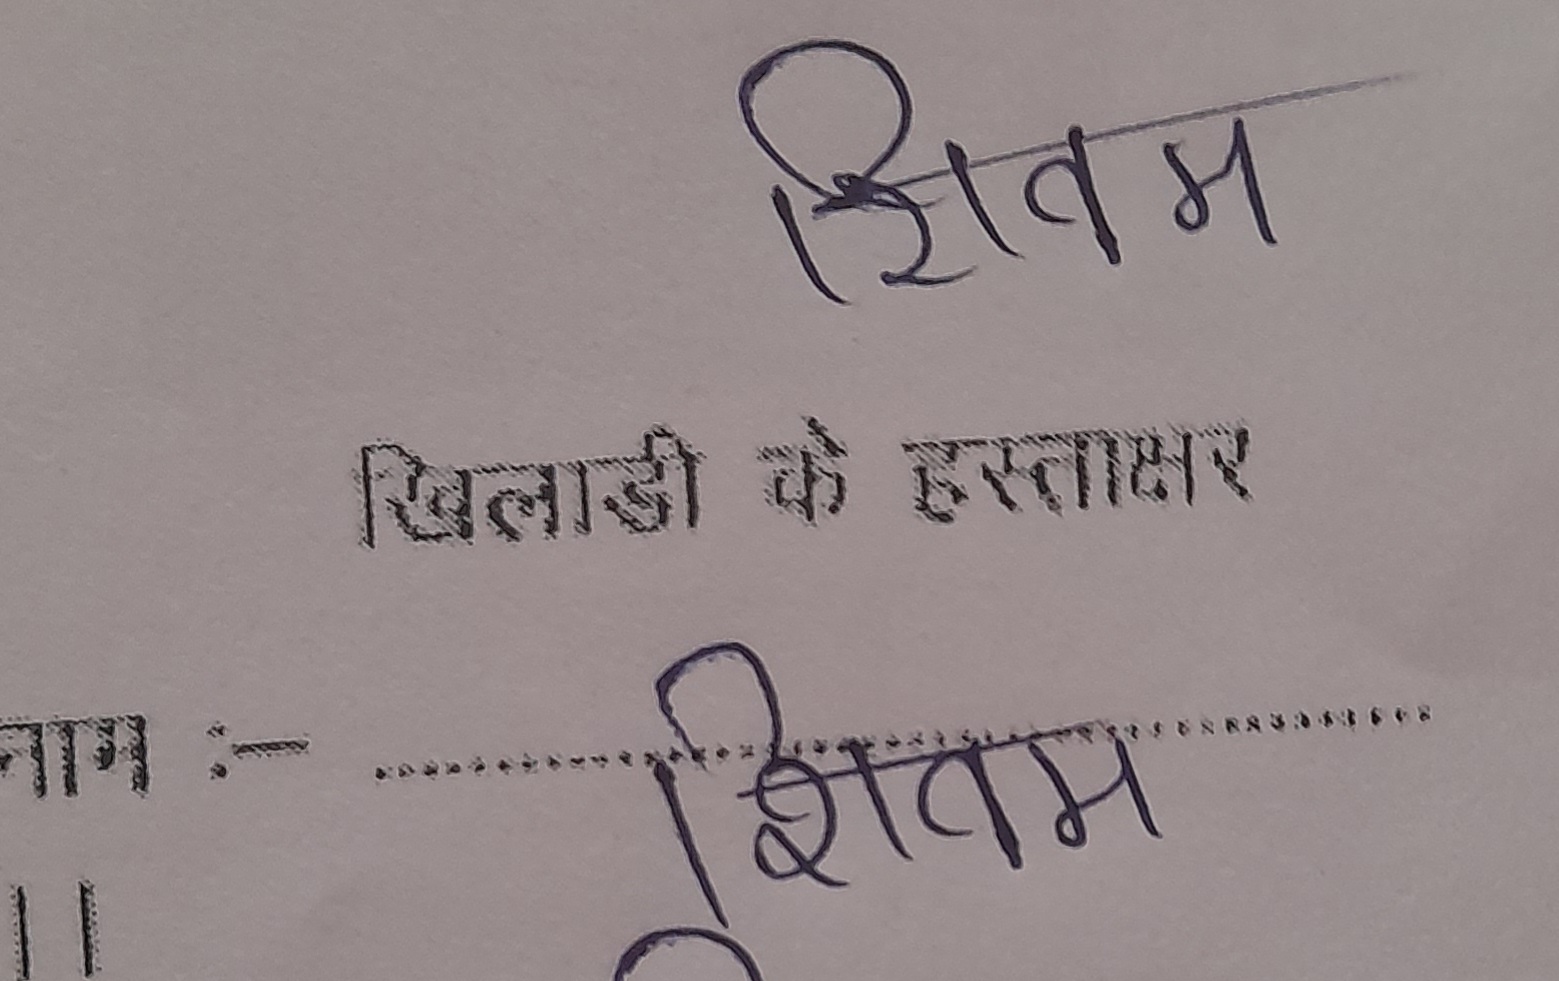 शिवम
खिलाडी के हस्ताक्षर
नाम :— ..............................
शिवम